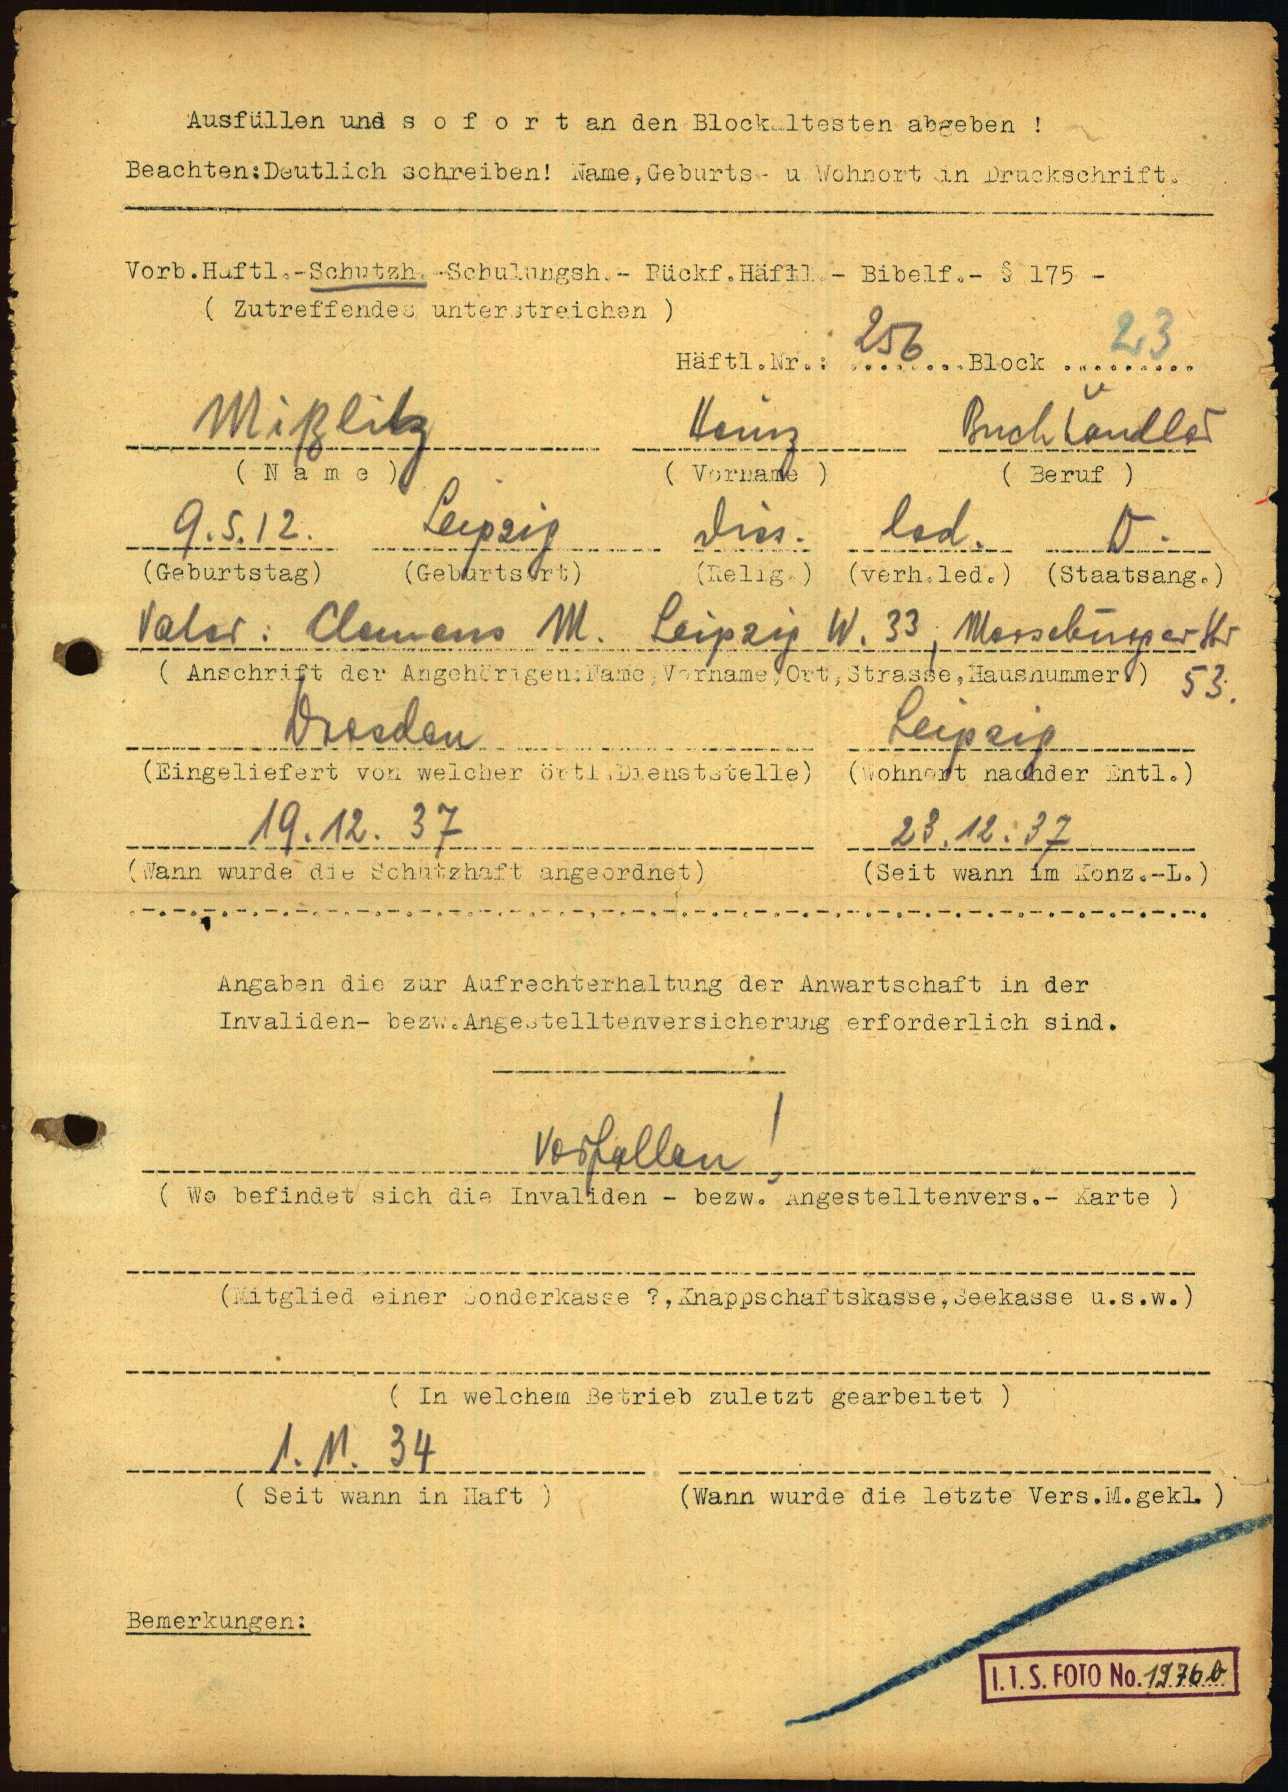 Ausfüllen und s o f o r t an den Blockältesten abgeben !
Beachten:Deutlich schreiben! Name,Geburts- u Wohnort in Druckschrift.
Vorb.Haftl.-Schutzh.-Schulungsh.- Rückf.Häftl.- Bibelf.- § 175 -
( Zutreffendes unterstreichen )
Häftl.Nr.: 256 Block 23
Mißlitz Heinz Buchhändler
( N a m e ) ( Vorname ) ( Beruf )
9.5.12. Leipzig Diss. led. D.
(Geburtstag) (Geburtsort) (Relig.) (verh.led.) (Staatsang.)
Vater: Clemens M. Leipzig W. 33, Merseburger Str
( Anschrift der Angehörigen:Name,Vorname,Ort,Strasse,Hausnummer.) 53.
Dresden Leipzig
(Eingeliefert von welcher örtl.Dienststelle) (Wohnort nachder Entl.)
19.12.37 23.12.37
(Wann wurde die Schutzhaft angeordnet) (Seit wann im Konz.-L.)
Angaben die zur Aufrechterhaltung der Anwartschaft in der
Invaliden- bezw.Angestelltenversicherung erforderlich sind.
Verfallen!
( Wo befindet sich die Invaliden - bezw. Angestelltenvers.- Karte )
(Mitglied einer Sonderkasse ?,Knappschaftskasse,Seekasse u.s.w.)
( In welchem Betrieb zuletzt gearbeitet )
1.11.34
( Seit wann in Haft ) (Wann wurde die letzte Vers.M.gekl.)
Bemerkungen:
I.T.S. FOTO No. 1976b